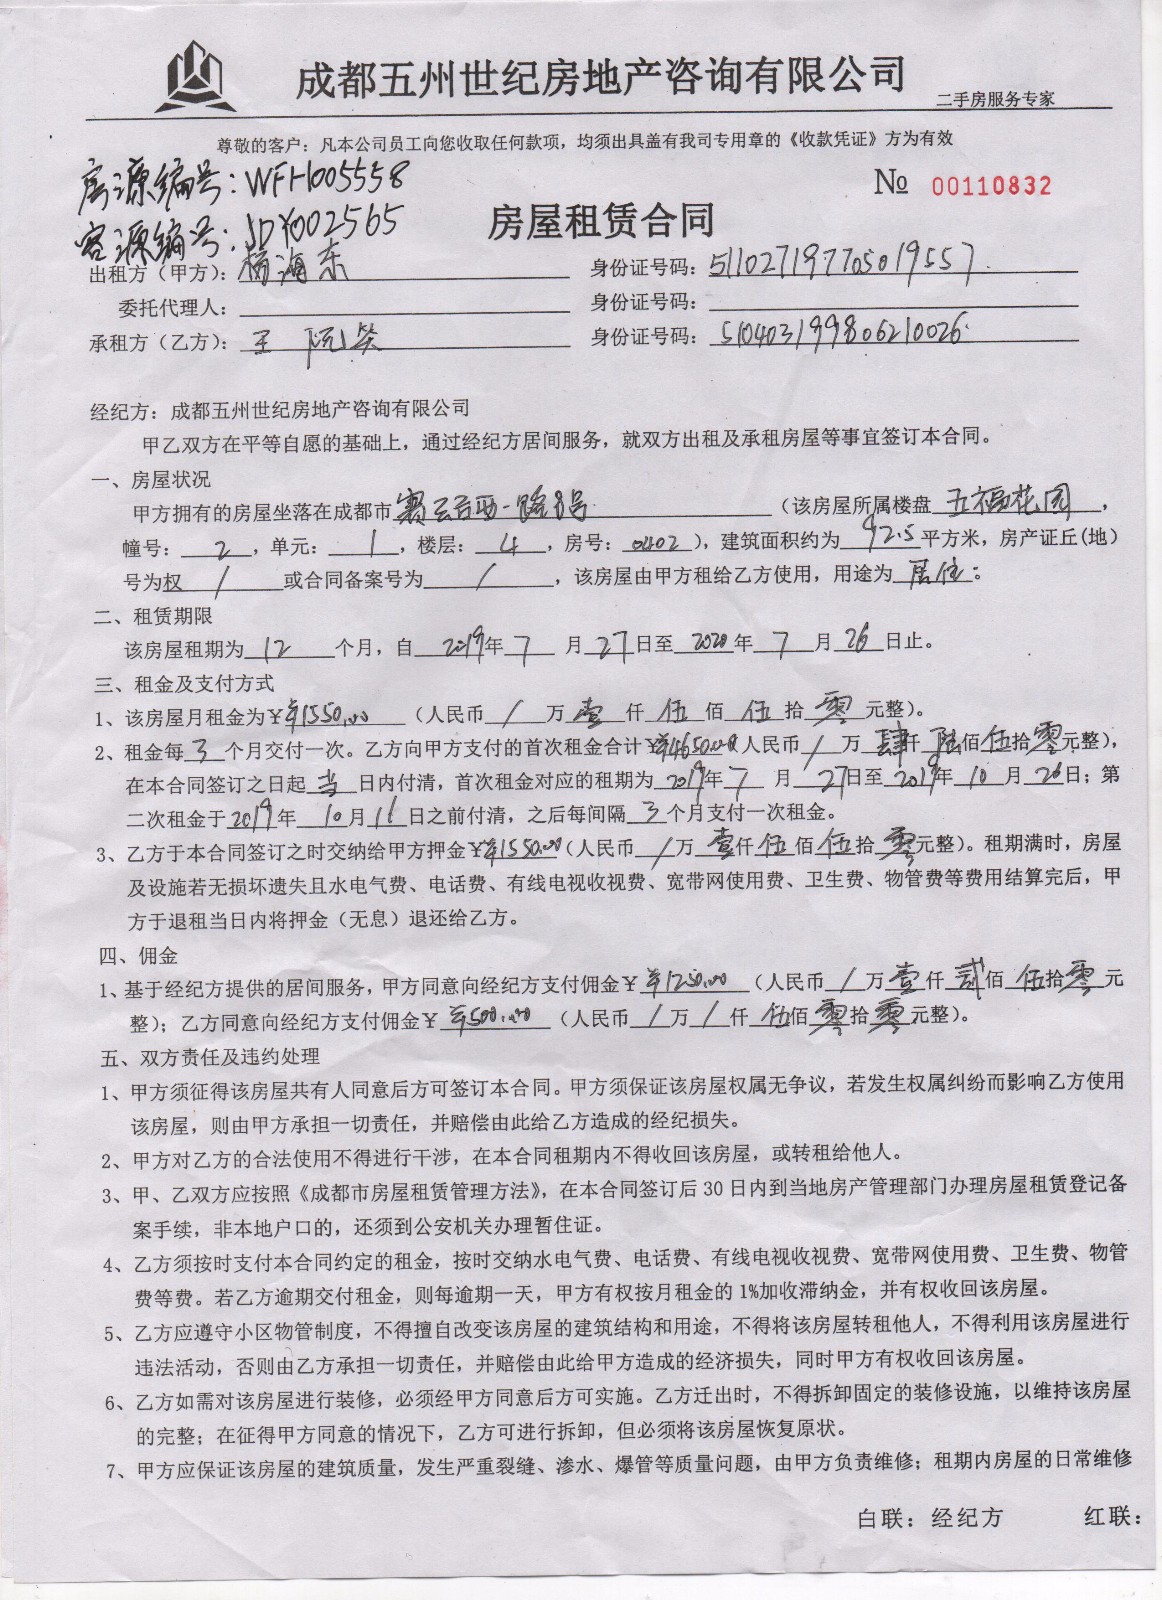 成都五州世纪房地产咨询有限公司
二手房服务专家
尊敬的客户：凡本公司员工向您收取任何款项，均须出具盖有我司专用章的《收款凭证》方为有效
房源编号：WFH005558
客源编号：JDY002565
№ 00110832
房屋租赁合同
出租方（甲方）：杨海东 身份证号码：511027197705019557
委托代理人： 身份证号码：
承租方（乙方）：王 身份证号码：510403199806210026
经纪方：成都五州世纪房地产咨询有限公司
甲乙双方在平等自愿的基础上，通过经纪方居间服务，就双方出租及承租房屋等事宜签订本合同。
一、房屋状况
甲方拥有的房屋坐落在成都市赛云台西一路8号（该房屋所属楼盘 五福花园，
幢号：2，单元：1，楼层：4，房号：0402），建筑面积约为 92.5 平方米，房产证丘(地)
号为权 / 或合同备案号为 / ，该房屋由甲方租给乙方使用，用途为 居住：
二、租赁期限
该房屋租期为 12 个月，自 2019年 7 月 27日至 2020年 7 月 26日止。
三、租金及支付方式
1、该房屋月租金为￥¥1550.00（人民币 / 万 壹 仟 伍 佰 伍 拾 零 元整）。
2、租金每 3 个月交付一次。乙方向甲方支付的首次租金合计￥¥4650.00（人民币 / 万 肆仟 陆佰 伍拾 零元整），
在本合同签订之日起 当 日内付清，首次租金对应的租期为 2019年 7 月 27日至 2019年 10 月 26日；第
二次租金于2019年 10月 11日之前付清，之后每间隔 3 个月支付一次租金。
3、乙方于本合同签订之时交纳给甲方押金￥¥1550.00（人民币 /万 壹仟 伍佰 伍拾 零元整）。租期满时，房屋
及设施若无损坏遗失且水电气费、电话费、有线电视收视费、宽带网使用费、卫生费、物管费等费用结算完后，甲
方于退租当日内将押金（无息）退还给乙方。
四、佣金
1、基于经纪方提供的居间服务，甲方同意向经纪方支付佣金￥ ¥1250.00（人民币 / 万 壹 仟 贰佰 伍拾零 元
整）；乙方同意向经纪方支付佣金￥ ¥500.00（人民币 / 万 / 仟 伍佰 零拾 零 元整）。
五、双方责任及违约处理
1、甲方须征得该房屋共有人同意后方可签订本合同。甲方须保证该房屋权属无争议，若发生权属纠纷而影响乙方使用
该房屋，则由甲方承担一切责任，并赔偿由此给乙方造成的经纪损失。
2、甲方对乙方的合法使用不得进行干涉，在本合同租期内不得收回该房屋，或转租给他人。
3、甲、乙双方应按照《成都市房屋租赁管理方法》，在本合同签订后 30 日内到当地房产管理部门办理房屋租赁登记备
案手续，非本地户口的，还须到公安机关办理暂住证。
4、乙方须按时支付本合同约定的租金，按时交纳水电气费、电话费、有线电视收视费、宽带网使用费、卫生费、物管
费等费。若乙方逾期交付租金，则每逾期一天，甲方有权按月租金的 1%加收滞纳金，并有权收回该房屋。
5、乙方应遵守小区物管制度，不得擅自改变该房屋的建筑结构和用途，不得将该房屋转租他人，不得利用该房屋进行
违法活动，否则由乙方承担一切责任，并赔偿由此给甲方造成的经济损失，同时甲方有权收回该房屋。
6、乙方如需对该房屋进行装修，必须经甲方同意后方可实施。乙方迁出时，不得拆卸固定的装修设施，以维持该房屋
的完整；在征得甲方同意的情况下，乙方可进行拆卸，但必须将该房屋恢复原状。
7、甲方应保证该房屋的建筑质量，发生严重裂缝、渗水、爆管等质量问题，由甲方负责维修；租期内房屋的日常维修
白联：经纪方 红联：